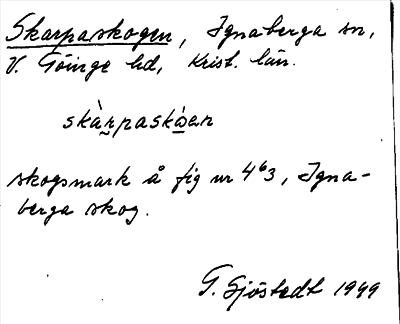 Skarpaskogen, Ignaberga sn,
V. Göinge hd, Krist. län.
skàrpaskòan
skogsmark å fig nr 4⁶3, Igna-
berga skog.
G. Sjöstedt 1949